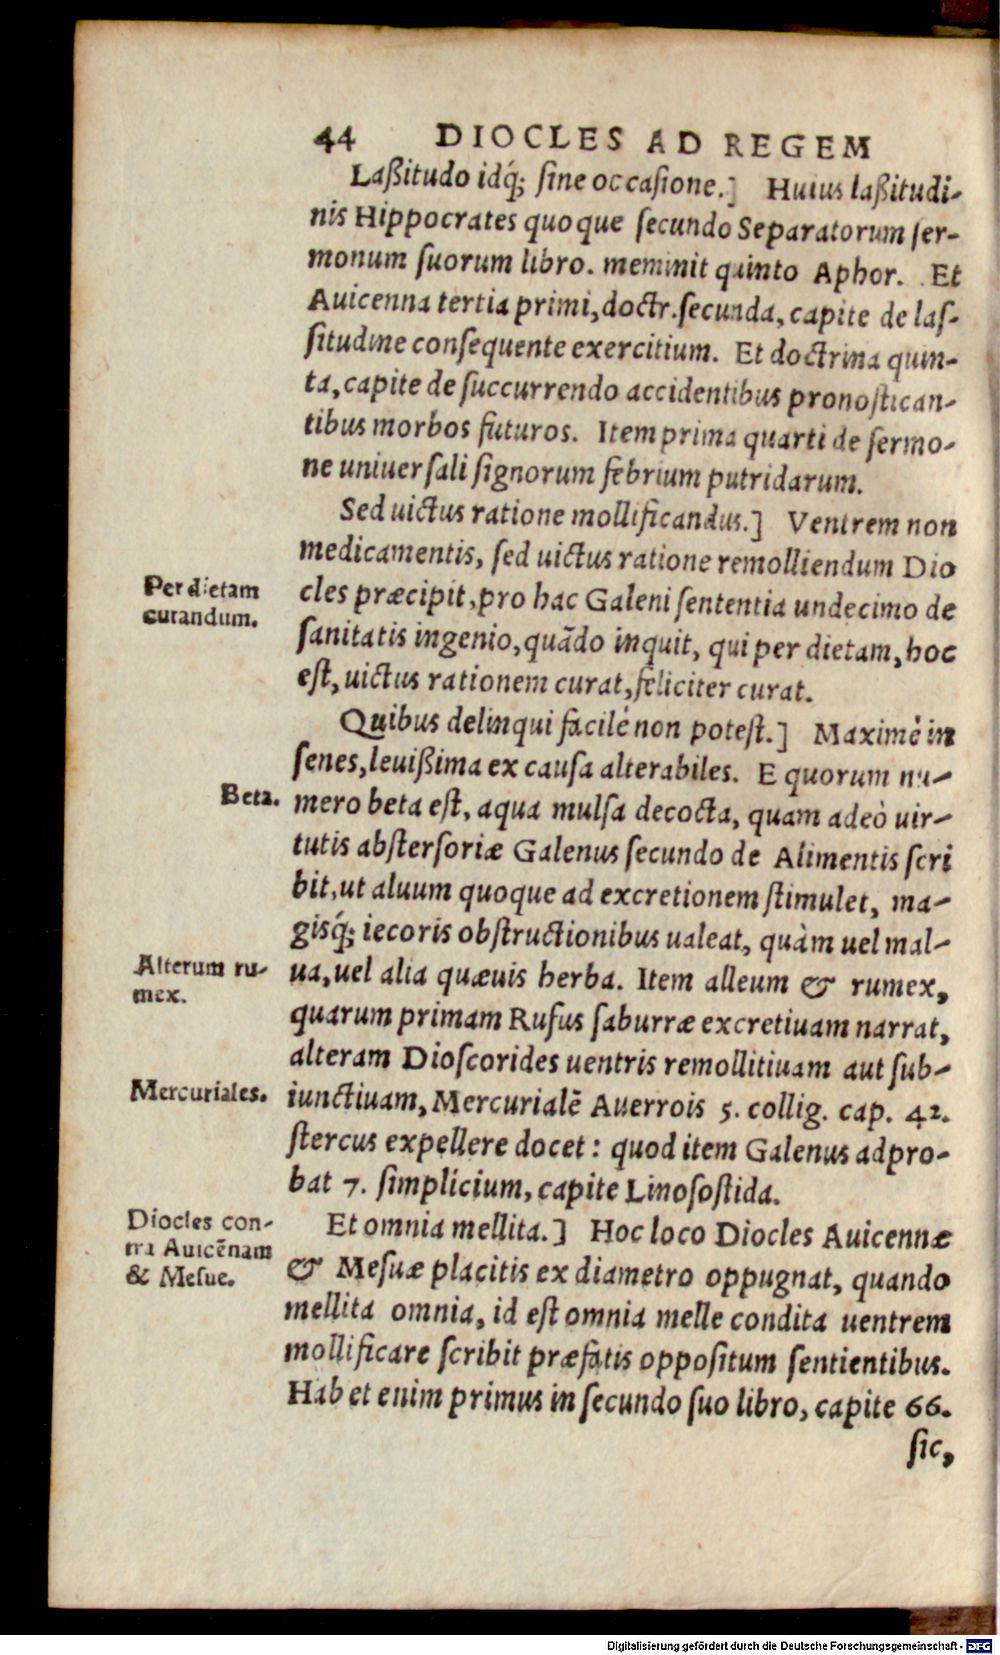 44 DIOCLES AD REGEM
Laßitudo idq́; sine occasione.] Huius laßitudi-
nis Hippocrates quoque secundo Separatorum ser-
monum suorum libro. meminit quinto Aphor. Et
Auicenna tertia primi, doctr. secunda, capite de las-
situdine consequente exercitium. Et doctrina quin-
ta, capite de succurrendo accidentibus pronostican-
tibus morbos futuros. Item prima quarti de sermo-
ne uniuersali signorum febrium putridarum.
Sed uictus ratione mollificandus.] Ventrem non
medicamentis, sed uictus ratione remolliendum Dio
Per dietam
curandum.
cles præcipit, pro hac Galeni sententia undecimo de
sanitatis ingenio, quãdo inquit, qui per dietam, hoc
est, uictus rationem curat, feliciter curat.
Quibus delinqui facilè non potest.] Maximè in
senes, leuißima ex causa alterabiles. E quorum nu-
Beta.
mero beta est, aqua mulsa decocta, quam adeò uir-
tutis abstersoriæ Galenus secundo de Alimentis scri
bit, ut aluum quoque ad excretionem stimulet, ma-
gisq́; iecoris obstructionibus ualeat, quàm uel mal-
Alterum ru-
mex.
ua, uel alia quæuis herba. Item alleum & rumex,
quarum primam Rufus saburræ excretiuam narrat,
alteram Dioscorides uentris remollitiuam aut sub-
Mercuriales.
iunctiuam, Mercurialẽ Auerrois 5. collig. cap. 42.
stercus expellere docet: quod item Galenus adpro-
bat 7. simplicium, capite Linosostida.
Diocles con-
tra Auicẽnam
& Mesue.
Et omnia mellita.] Hoc loco Diocles Auicennæ
& Mesuæ placitis ex diametro oppugnat, quando
mellita omnia, id est omnia melle condita uentrem
mollificare scribit præfatis oppositum sentientibus.
Habet enim primus in secundo suo libro, capite 66.
sic,
Digitalisierung gefördert durch die Deutsche Forschungsgemeinschaft - DFG